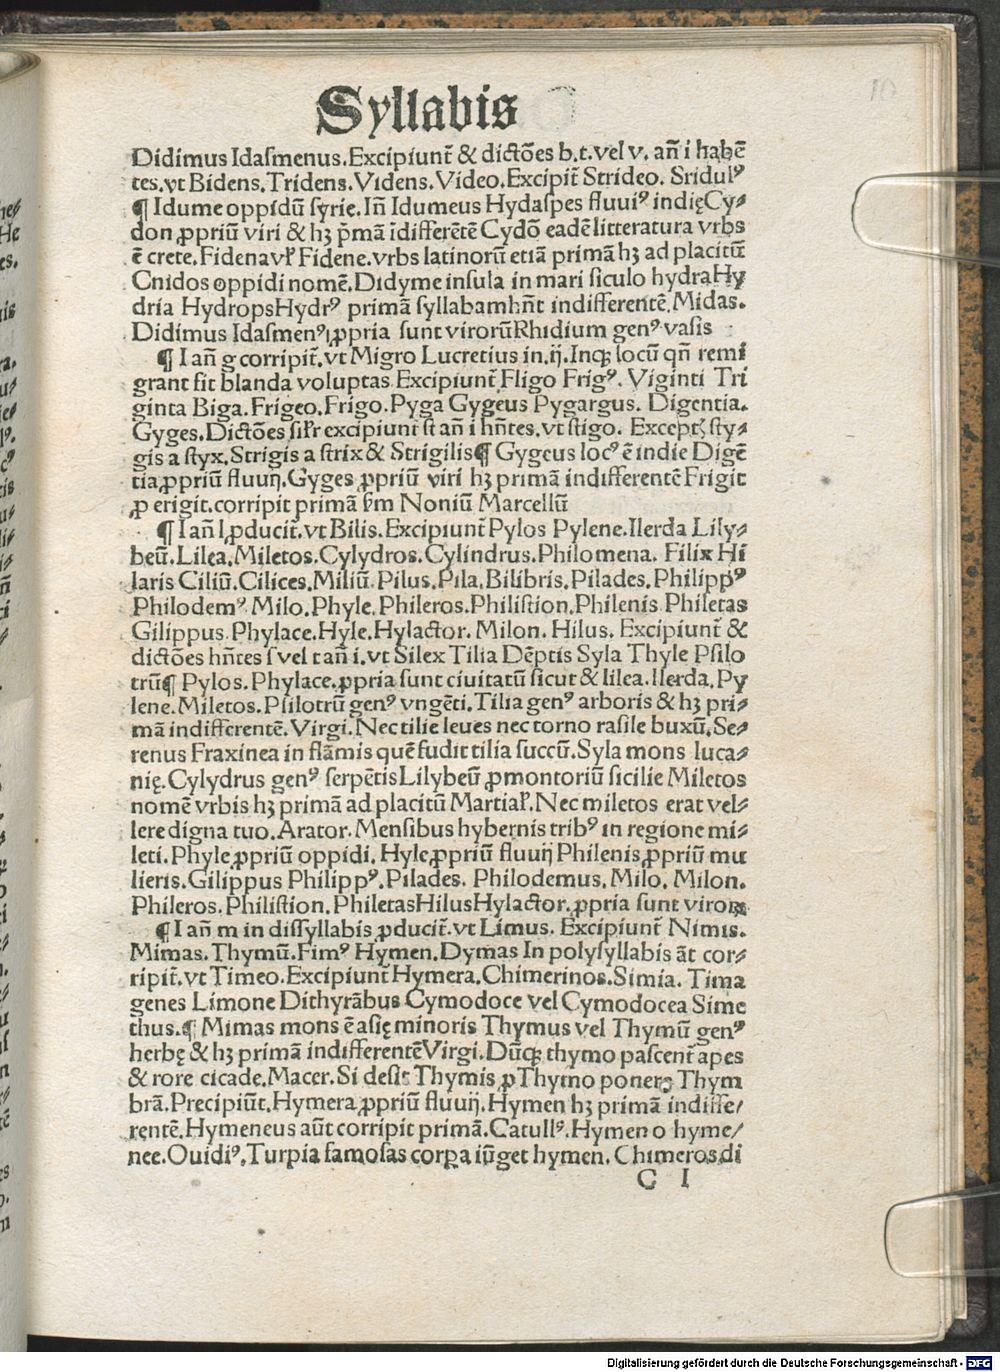 10
Syllabis
Didimus Idasmenus.Excipiunt̃ & dictões b.t.vel v. añ i habẽ
tes.vt Bidens.Tridens.Videns.Video.Excipit̃ Strideo. Sridulꝰ
¶ Idume oppidũ syrie.Iñ Idumeus Hydaspes fluuiꝰ indięCy⸗
don ꝓpriũ viri & hꝫ p̃mã ĩdifferẽtẽ Cydõ eadẽ litteratura vrbs
ẽ crete. Fidena vl̓ Fidene.vrbs latinorũ etiã primã hꝫ ad placitũ
Cnidos oppidi nomẽ.Didyme insula in mari siculo hydra Hy
dria HydropsHydrꝰ primã syllabam hñt indifferentẽ.Midas.
Didimus Idasmenꝰ ꝓpria sunt virorũ Rhidium genꝰ vasis
¶ I añ g corripit̃.vt Migro Lucretius in.ij.Inqꝫ locũ qñ remi
grant fit blanda voluptas Excipiunt̃ Fligo Frigꝰ. Viginti Tri
ginta Biga.Frigeo.Frigo.Pyga Gygeus Pygargus. Digentia.
Gyges.Dictões sil̓r excipiunt̃ st añ i hñtes.vt stigo. Exceptꝫ sty⸗
gis a styx.Strigis a strix & Strigilis¶ Gygeus locꝰ ẽ indie Digẽ
tia ꝓpriũ fluuij.Gyges ꝓpriũ viri hꝫ primã indifferentẽ Frigit
ꝓ erigit.corripit primã ẜm Noniũ Marcellũ
¶ I añ l ꝓducit̃.vt Bilis.Excipiunt̃ Pylos Pylene.Ilerda Lily⸗
beũ.Lilea.Miletos.Cylydros.Cylindrus.Philomena. Filix Hi
laris Ciliũ.Cilices.Miliũ.Pilus.Pila.Bilibris.Pilades.Philippꝰ
Philodemꝰ.Milo.Phyle.Phileros.Philistion.Philenis Philetas
Gilippus.Phylace.Hyle.Hylactor. Milon. Hilus. Excipiunt̃ &
dictões hñtes s vel t añ i.vt Silex Tilia Dẽptis Syla Thyle Psilo
trũ¶ Pylos.Phylace.ꝓpria sunt ciuitatũ sicut & lilea.Ilerda.Py
lene.Miletos.Psilotrũ genꝰ vngẽti.Tilia genꝰ arboris & hꝫ pri⸗
mã indifferentẽ.Virgi.Nec tilie leues nec torno rasile buxũ.Se⸗
renus Fraxinea in flãmis quẽ fudit tilia succũ.Syla mons luca⸗
nię.Cylydrus genꝰ serpẽtis Lilybeũ ꝓmontoriũ sicilie Miletos
nomẽ vrbis hꝫ primã ad placitũ Martial̓.Nec miletos erat vel⸗
lere digna tuo.Arator.Mensibus hybernis tribꝰ in regione mi⸗
leti.Phyle ꝓpriũ oppidi. Hyle ꝓpriũ fluuij Philenis ꝓpriũ mu
lieris.Gilippus Philippꝰ.Pilades. Philodemus. Milo. Milon.
Phileros. Philistion. PhiletasHilusHylactor.ꝓpria sunt viroꝝ
¶ I añ m in dissyllabis ꝓducit̃.vt Limus. Excipiunt̃ Nimis.
Mimas.Thymũ.Fimꝰ Hymen.Dymas In polysyllabis ãt cor⸗
ripit̃.vt Timeo.Excipiunt̃ Hymera.Chimerinos.Simia. Tima
genes Limone Dithyrãbus Cymodoce vel Cymodocea Sime
thus.¶ Mimas mons ẽ asię minoris Thymus vel Thymũ genꝰ
herbę & hꝫ primã indifferentẽ Virgi.Dũqꝫ thymo pascent̃ apes
& rore cicade.Macer.Si desit Thymis ꝓ Thymo poner Thym
brã.Precipiũt.Hymera ꝓpriũ fluuij.Hymen hꝫ primã indiffe/
rentẽ.Hymeneus aũt corripit primã.Catullꝰ.Hymen o hyme/
nee.Ouidiꝰ.Turpia famosas corpa iũget hymen. Chimeros.di
C I
Digitalisierung gefördert durch die Deutsche Forschungsgemeinschaft - DFG